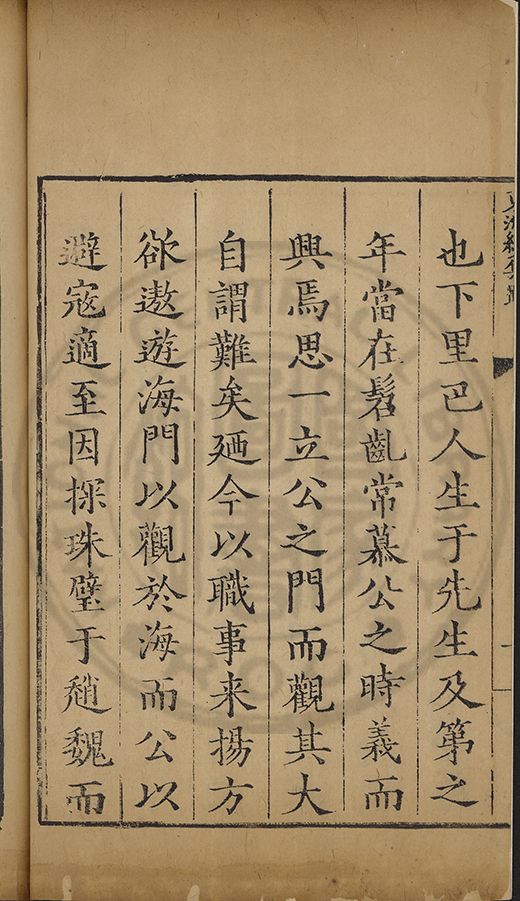 也下里巴人生于先生及第之
年當在髫齔常慕公之時義而
興焉思一立公之門而觀其大
自謂難矣廼今以職事来揚方
欲遨遊海門以觀於海而公以
避寇適至因探珠璧于趙魏而